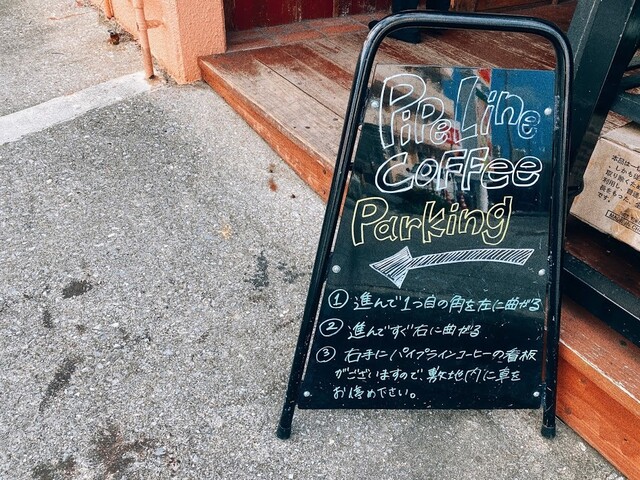 PiPeLine
COFFee
Parking
① 進んで1つ目の角を左に曲がる
② 進んですぐ右に曲がる
③ 右手にパイプラインコーヒーの看板
がございますので、敷地内に車を
お停め下さい。
本品は
しかも
取り除く
利用し